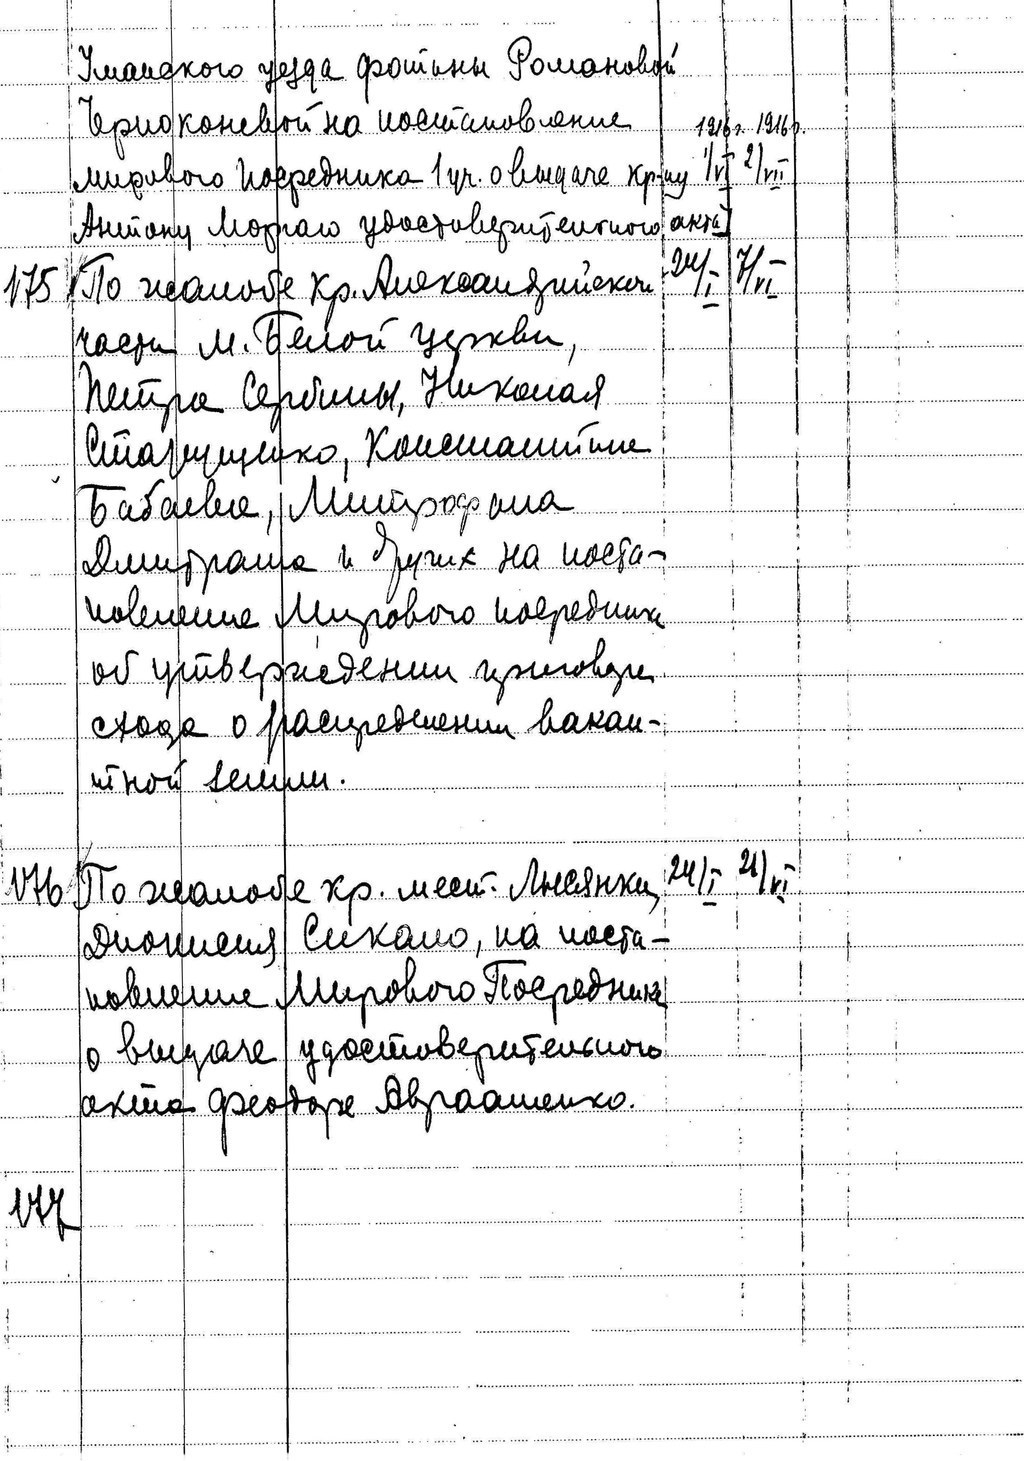 Уманского уезда Фотины Романовой
Черноконевой на постановление
1916 г. 1916 г.
мирового посредника 1 уч. о выдаче кр-ну 1/VI 2/VII
Антону удостоверительного акта
175 По жалобе кр. Александрийской 24/I 7/VI
части м. Белой Церкви,
Петра Сербины, Николая
Константина
Бабаева, Митрофана
Дмитраша и других на поста-
новление Мирового посредника
об утверждении приговора
схода о распределении вакан-
тной земли.
176 По жалобе кр. мест. Лысянки, 24/I 21/VI
Дионисия Сикало, на поста-
новление Мирового Посредника
о выдаче удостоверительного
акта Феодоре Авраменко.
177